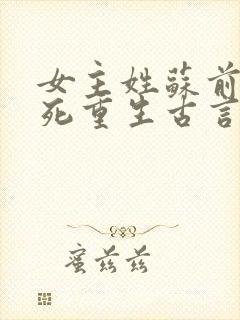 女主姓蘇前
死重生古言
蜜兹兹